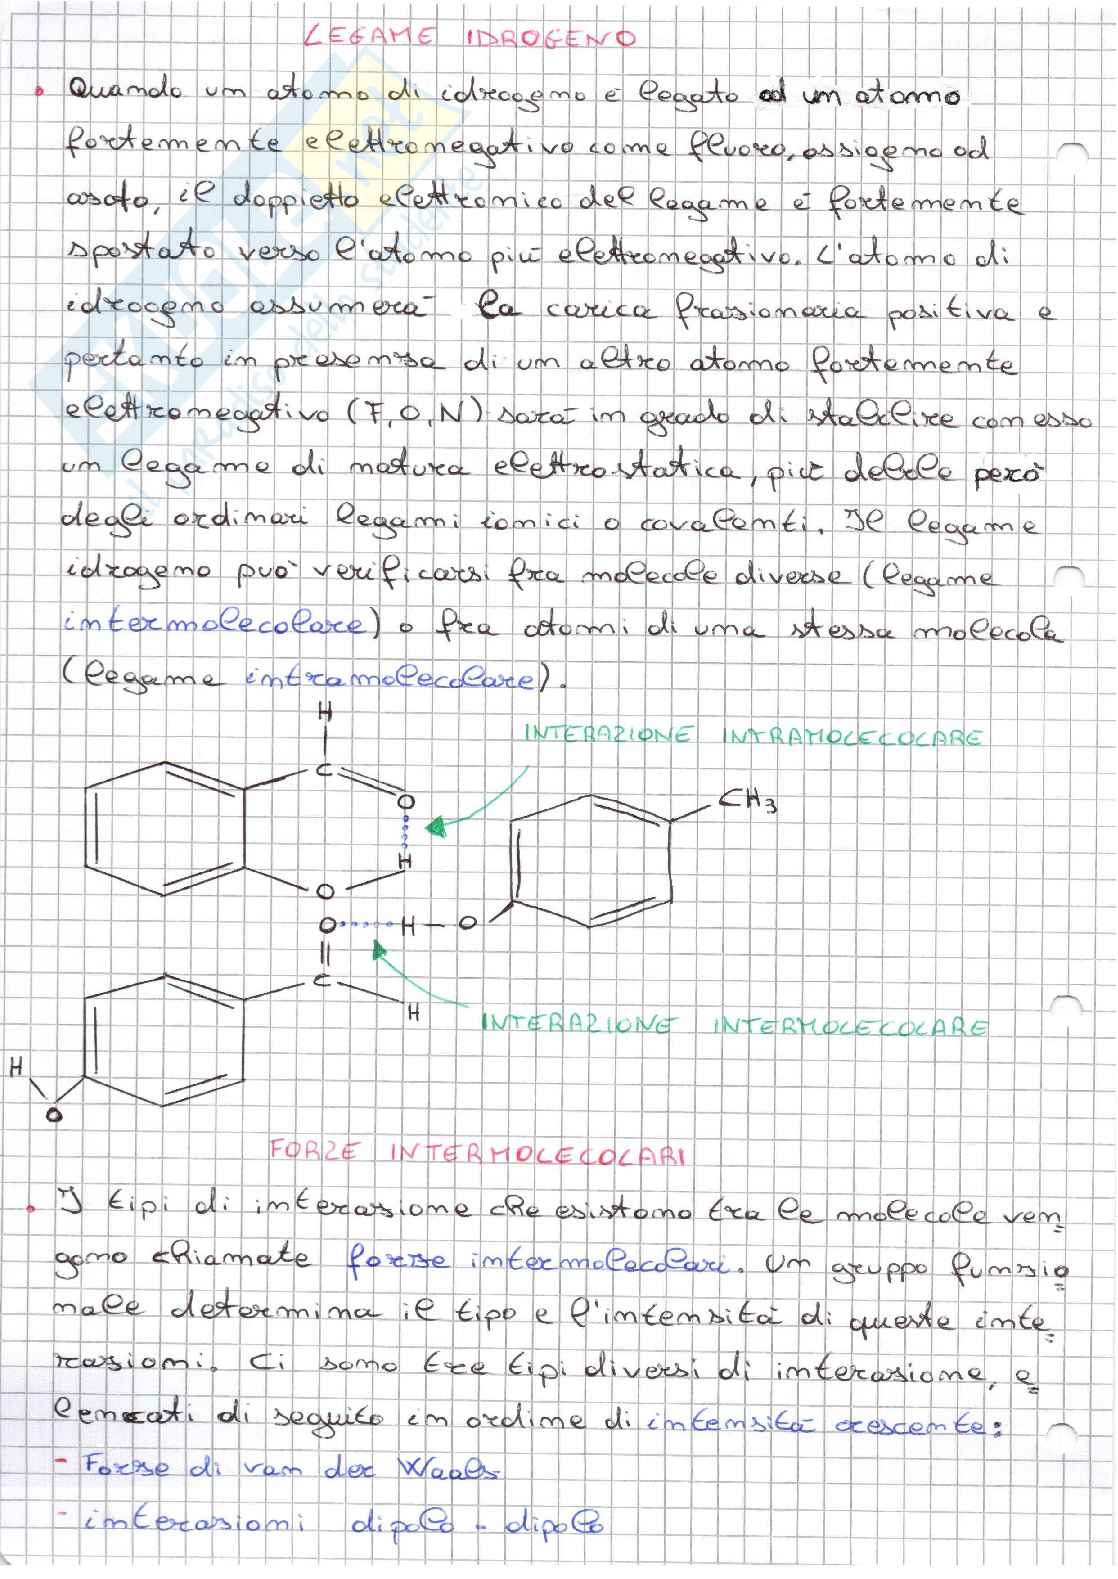 LEGAME IDROGENO
• Quando un atomo di idrogeno è legato ad un atomo
fortemente elettronegativo come fluoro, ossigeno od
azoto, il doppietto elettronico del legame è fortemente
spostato verso l'atomo più elettronegativo. L'atomo di
idrogeno assumerà la carica frazionaria positiva e
pertanto in presenza di un altro atomo fortemente
elettronegativo (F, O, N) sarà in grado di stabilire con esso
un legame di natura elettrostatica, più debole però
degli ordinari legami ionici o covalenti. Il legame
idrogeno può verificarsi fra molecole diverse (legame
intermolecolare) o fra atomi di una stessa molecola
(legame intramolecolare).
H
INTERAZIONE INTRAMOLECOLARE
C
O
CH3
H
O
O H O
C
H
INTERAZIONE INTERMOLECOLARE
H
O
FORZE INTERMOLECOLARI
• I tipi di interazione che esistono tra le molecole ven
gono chiamate forze intermolecolari. Un gruppo funzio
nale determina il tipo e l'intensità di queste inte
razioni. Ci sono tre tipi diversi di interazione, e
lencati di seguito in ordine di intensità crescente:
- Forze di van der Waals
- interazioni dipolo - dipolo